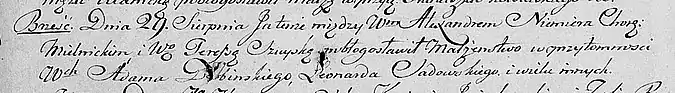 Brześć. Dnia 29. Sierpnia Ja tenże między Wm Alexandrem Niemira Chorą:
Mielnickim i Wą Teressą Szuyską pobłogosławił Małżenstwo w przytomnosci
Wch Adama Dębinskiego, Leonarda Sadowskiego, i wielu innych.